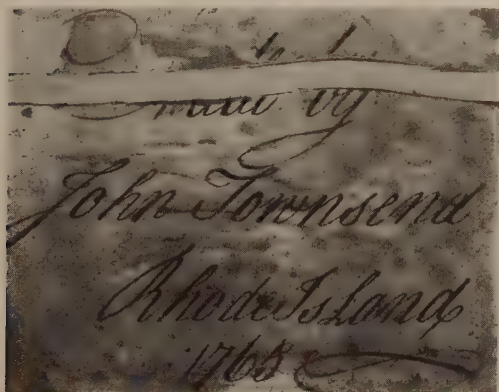 by
John Townsend
Rhode Island
1765